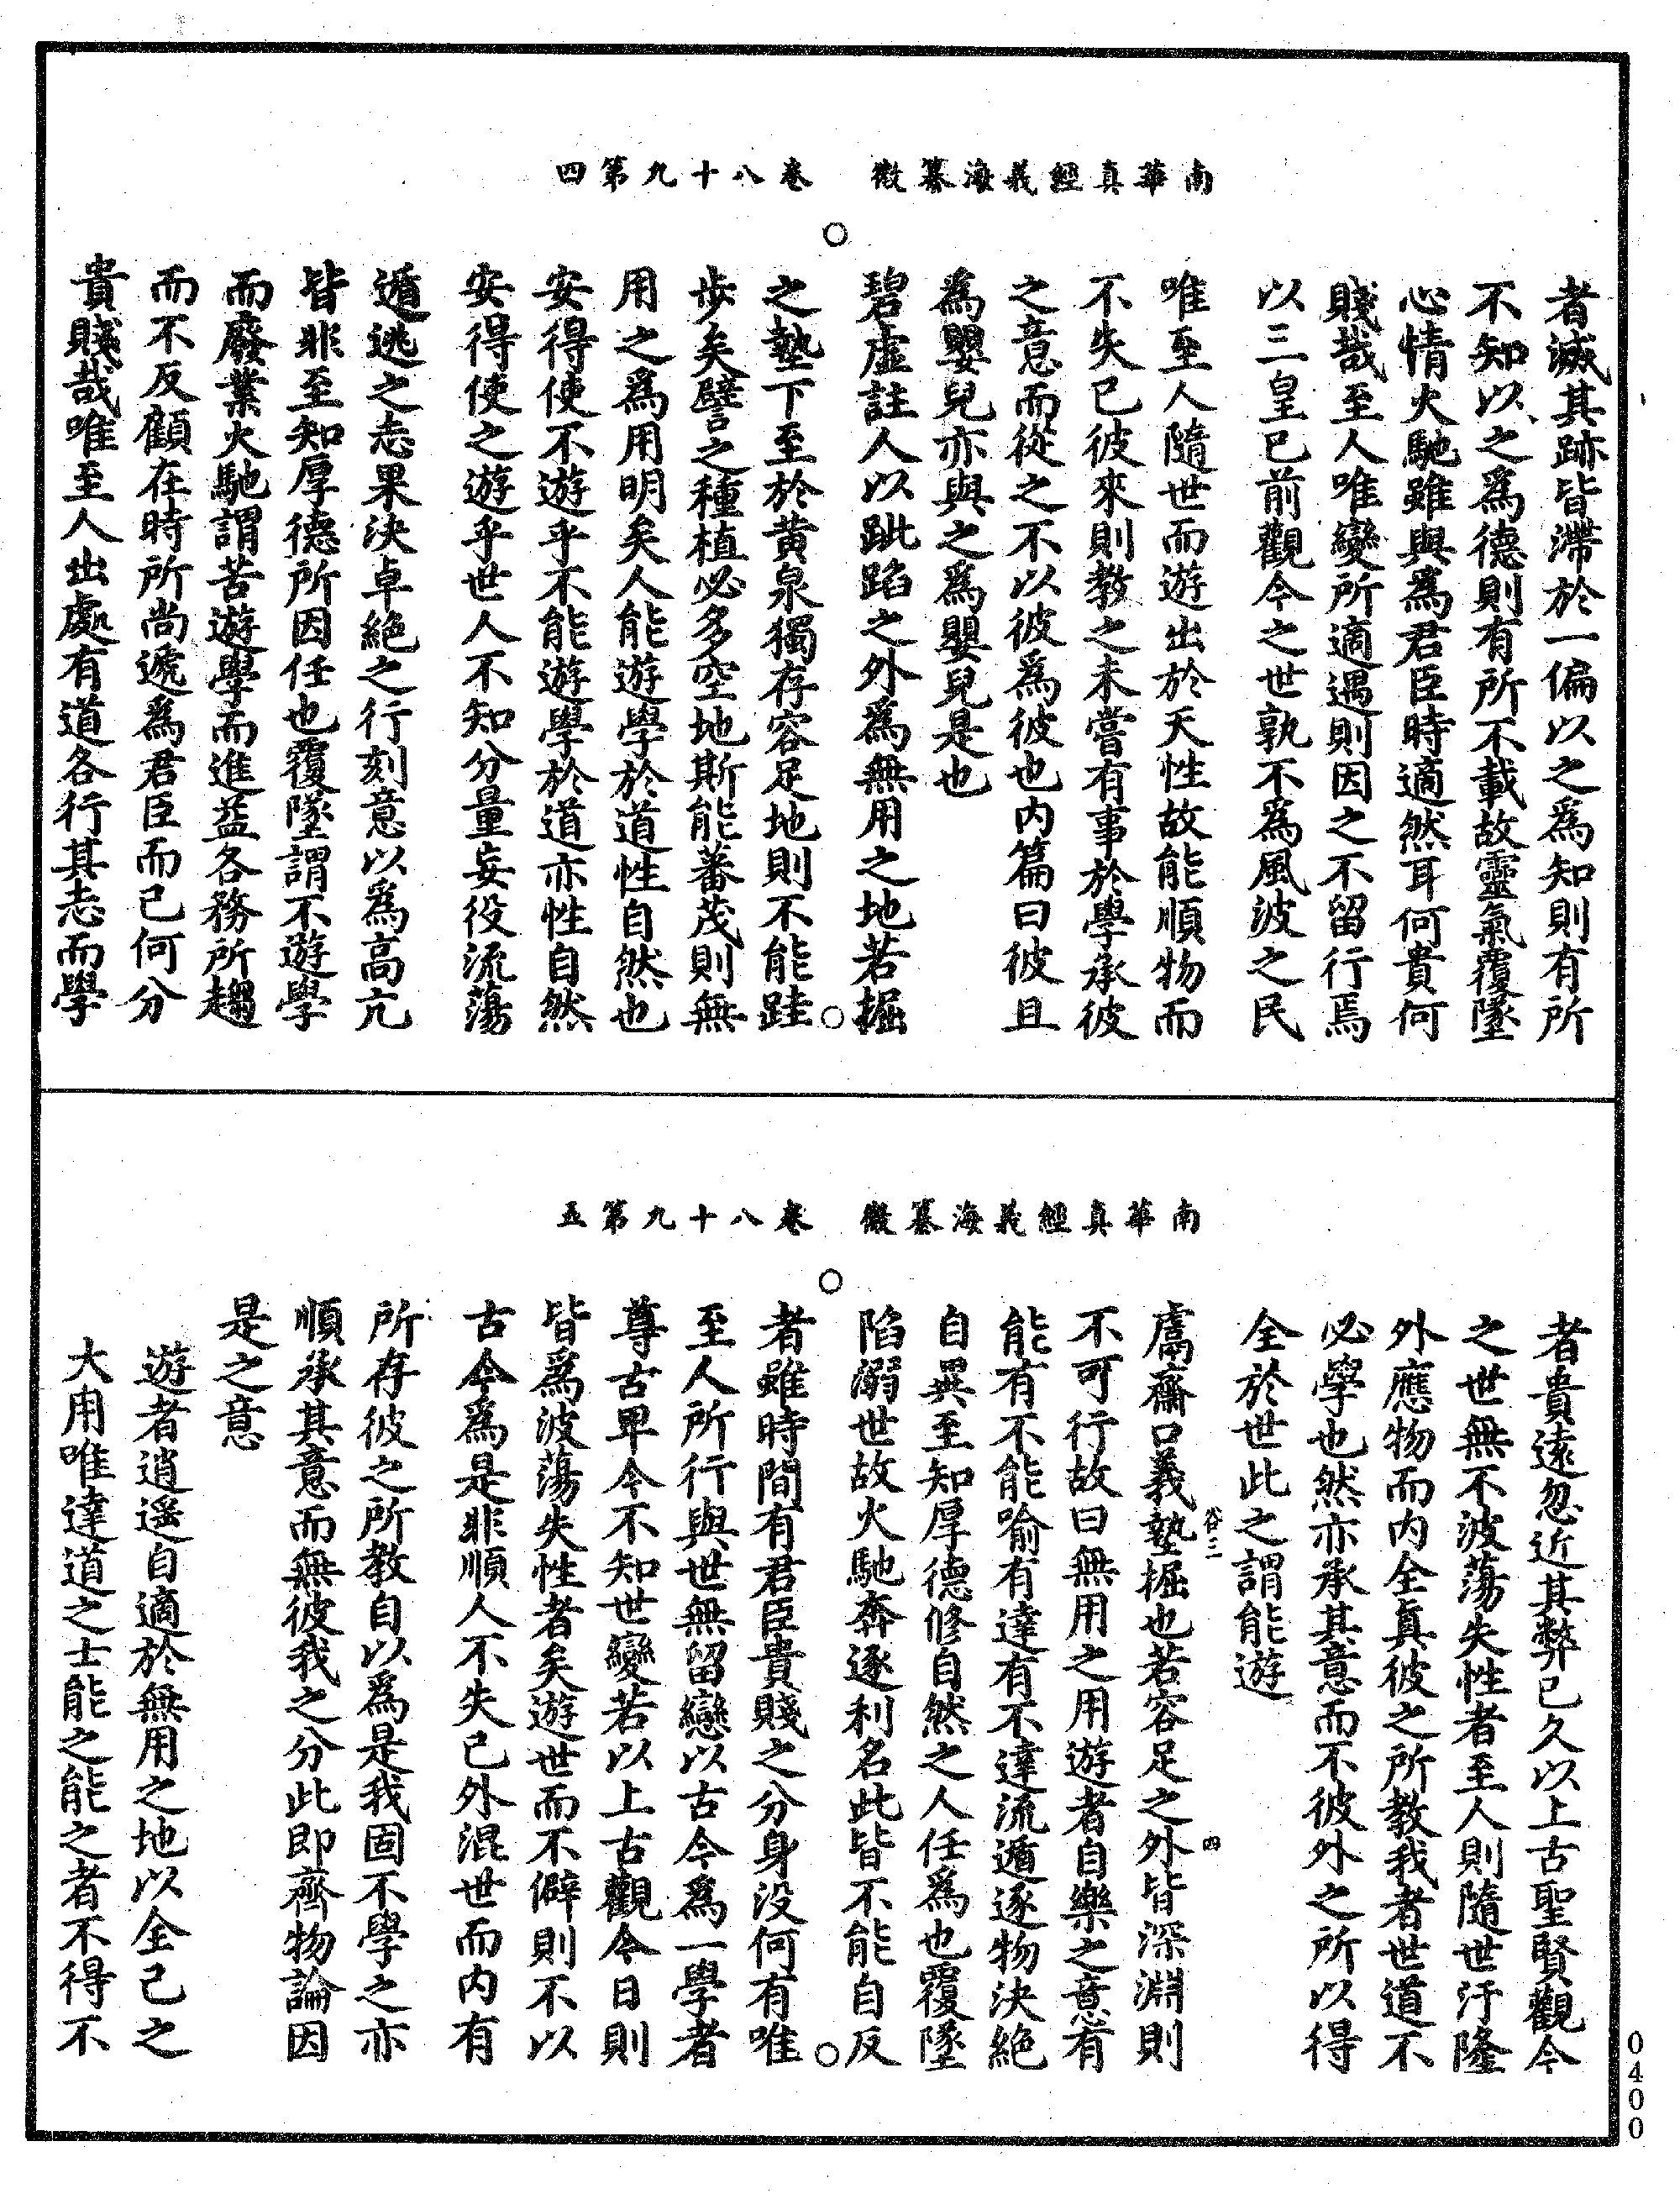 南華真經義海纂微　卷八十九第四
者滅其跡皆滯於一偏以之爲知則有所
不知以之爲德則有所不載故靈氣覆墜
心情火馳雖與爲君臣時適然耳何貴何
賤哉至人唯變所適遇則因之不留行焉
以三皇已前觀今之世孰不爲風波之民
唯至人隨世而遊出於天性故能順物而
不失已彼來則教之未嘗有事於學承彼
之意而從之不以彼爲彼也内篇曰彼且
爲嬰兒亦與之爲嬰兒是也
碧虛註人以跐蹈之外爲無用之地若掘
之墊下至於黄泉獨存容足地則不能跬
步矣譬之種植必多空地斯能蕃茂則無
用之爲用明矣人能遊學於道性自然也
安得使不遊乎不能遊學於道亦性自然
安得使之遊乎世人不知分量妄役流蕩
遁逃之志果決卓絕之行刻意以爲高亢
皆非至知厚德所因任也覆墜謂不遊學
而廢業火馳謂苦遊學而進益各務所趨
而不反顧在時所尚遞爲君臣而已何分
貴賤哉唯至人出處有道各行其志而學
南華真經義海纂微　卷八十九第五
者貴遠忽近其弊已久以上古聖賢觀今
之世無不波蕩失性者至人則隨世汙隆
外應物而内全真彼之所教我者世道不
必學也然亦承其意而不彼外之所以得
全於世此之謂能遊
鬳齋口義墊掘也若容足之外皆深淵則
谷三
四
不可行故曰無用之用遊者自樂之意有
能有不能喻有達有不達流遁逐物決絕
自異至知厚德修自然之人任爲也覆墜
陷溺世故火馳奔逐利名此皆不能自反
者雖時間有君臣貴賤之分身没何有唯
至人所行與世無留戀以古今爲一學者
尊古卑今不知世變若以上古觀今日則
皆爲波蕩失性者矣遊世而不僻則不以
古今爲是非順人不失已外混世而内有
所存彼之所教自以爲是我固不學之亦
順承其意而無彼我之分此即齊物論因
是之意
遊者逍遥自適於無用之地以全己之
大用唯達道之士能之能之者不得不
0400